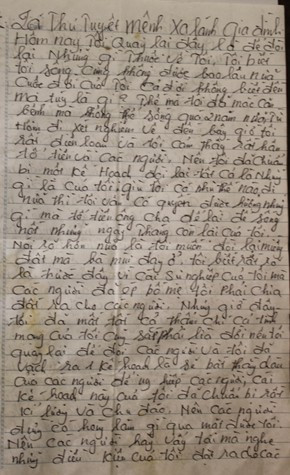 Lá Thư Tuyệt mệnh xa lánh Gia đình
Hôm nay Tôi Quay lại đây, là để đòi
lại Những gì Thuộc về Tôi, Tôi biết
tôi sống cũng không được bao lâu nữa
Cuộc đời của Tôi Cả đời không biết đến
ma túy là gì? Thế mà tôi đã mắc căn
bệnh mà không thể sống Quá 2 năm nữa, Từ
Hôm đi xét nghiệm về đến bây giờ tôi
rất điên loạn và tôi Cảm thấy rất hận
tổ tiên và các người. Nên tôi đã chuẩn
bị một kế Hoạch đòi lại tất cả là Những
gì là Của tôi, gì tôi có như thế nào đi
nữa thì tôi vẫn có quyền được hưởng những
gì mà tổ tiên ông cha để lại để sống
nốt những ngày tháng còn lại của tôi
Nói rõ hơn nữa là tôi muốn đòi lại mảng
đất mà ba mẹ đây ở. tôi biết rất rõ
là trước đây vì Cái Sự nghiệp của Tôi mà
các người đã ép bố mẹ tôi Phải Chia
đất ra cho các người. Nhưng giờ đây
tôi đã mất tất cả thậm chí cả tính
mạng của tôi cũng sắp phải lìa đời nên tôi
quay lại để đòi các người và tôi đã
vạch ra 1 kế hoạch là sẽ bắt những đứa
con các người để uy hiếp các người, Cái
kế hoạch này của tôi đã chuẩn bị rất
kĩ lưỡng và chu đáo. Nên các người
đừng có hòng làm gì qua mặt được tôi
Nên các người hãy vậy tôi mà nghe
những điều kiện của tôi đã ra cho các